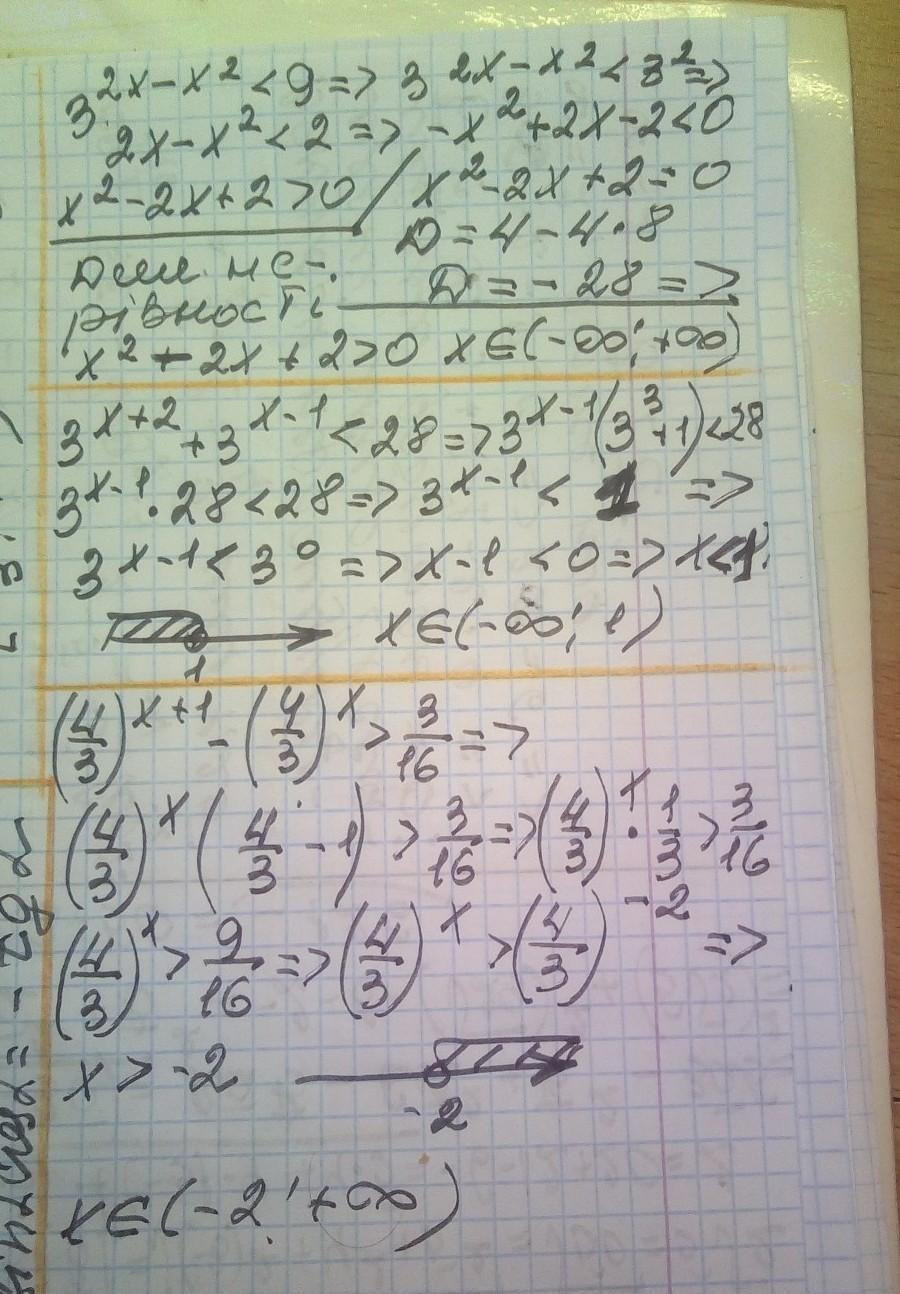 3^{2x-x^2} < 9 => 3^{2x-x^2} < 3^2 =>
2x-x^2 < 2 => -x^2+2x-2<0
x^2-2x+2>0 / x^2-2x+2=0
D = 4-4·8
Для не-
D = -28 =>
рівності
x^2-2x+2>0 x∈(-∞; +∞)
3^{x+2} + 3^{x-1} < 28 => 3^{x-1}(3^3+1)<28
3^{x-1}·28<28 => 3^{x-1} < 1 =>
3^{x-1} < 3^0 => x-1 <0 => x<1.
1
x∈(-∞; 1)
(4/3)^{x+1} - (4/3)^x > 3/16 =>
(4/3)^x (4/3 - 1) > 3/16 => (4/3)^x · 1/3 > 3/16
(4/3)^x > 9/16 => (4/3)^x > (4/3)^{-2} =>
x > -2
-2
x∈(-2; +∞)